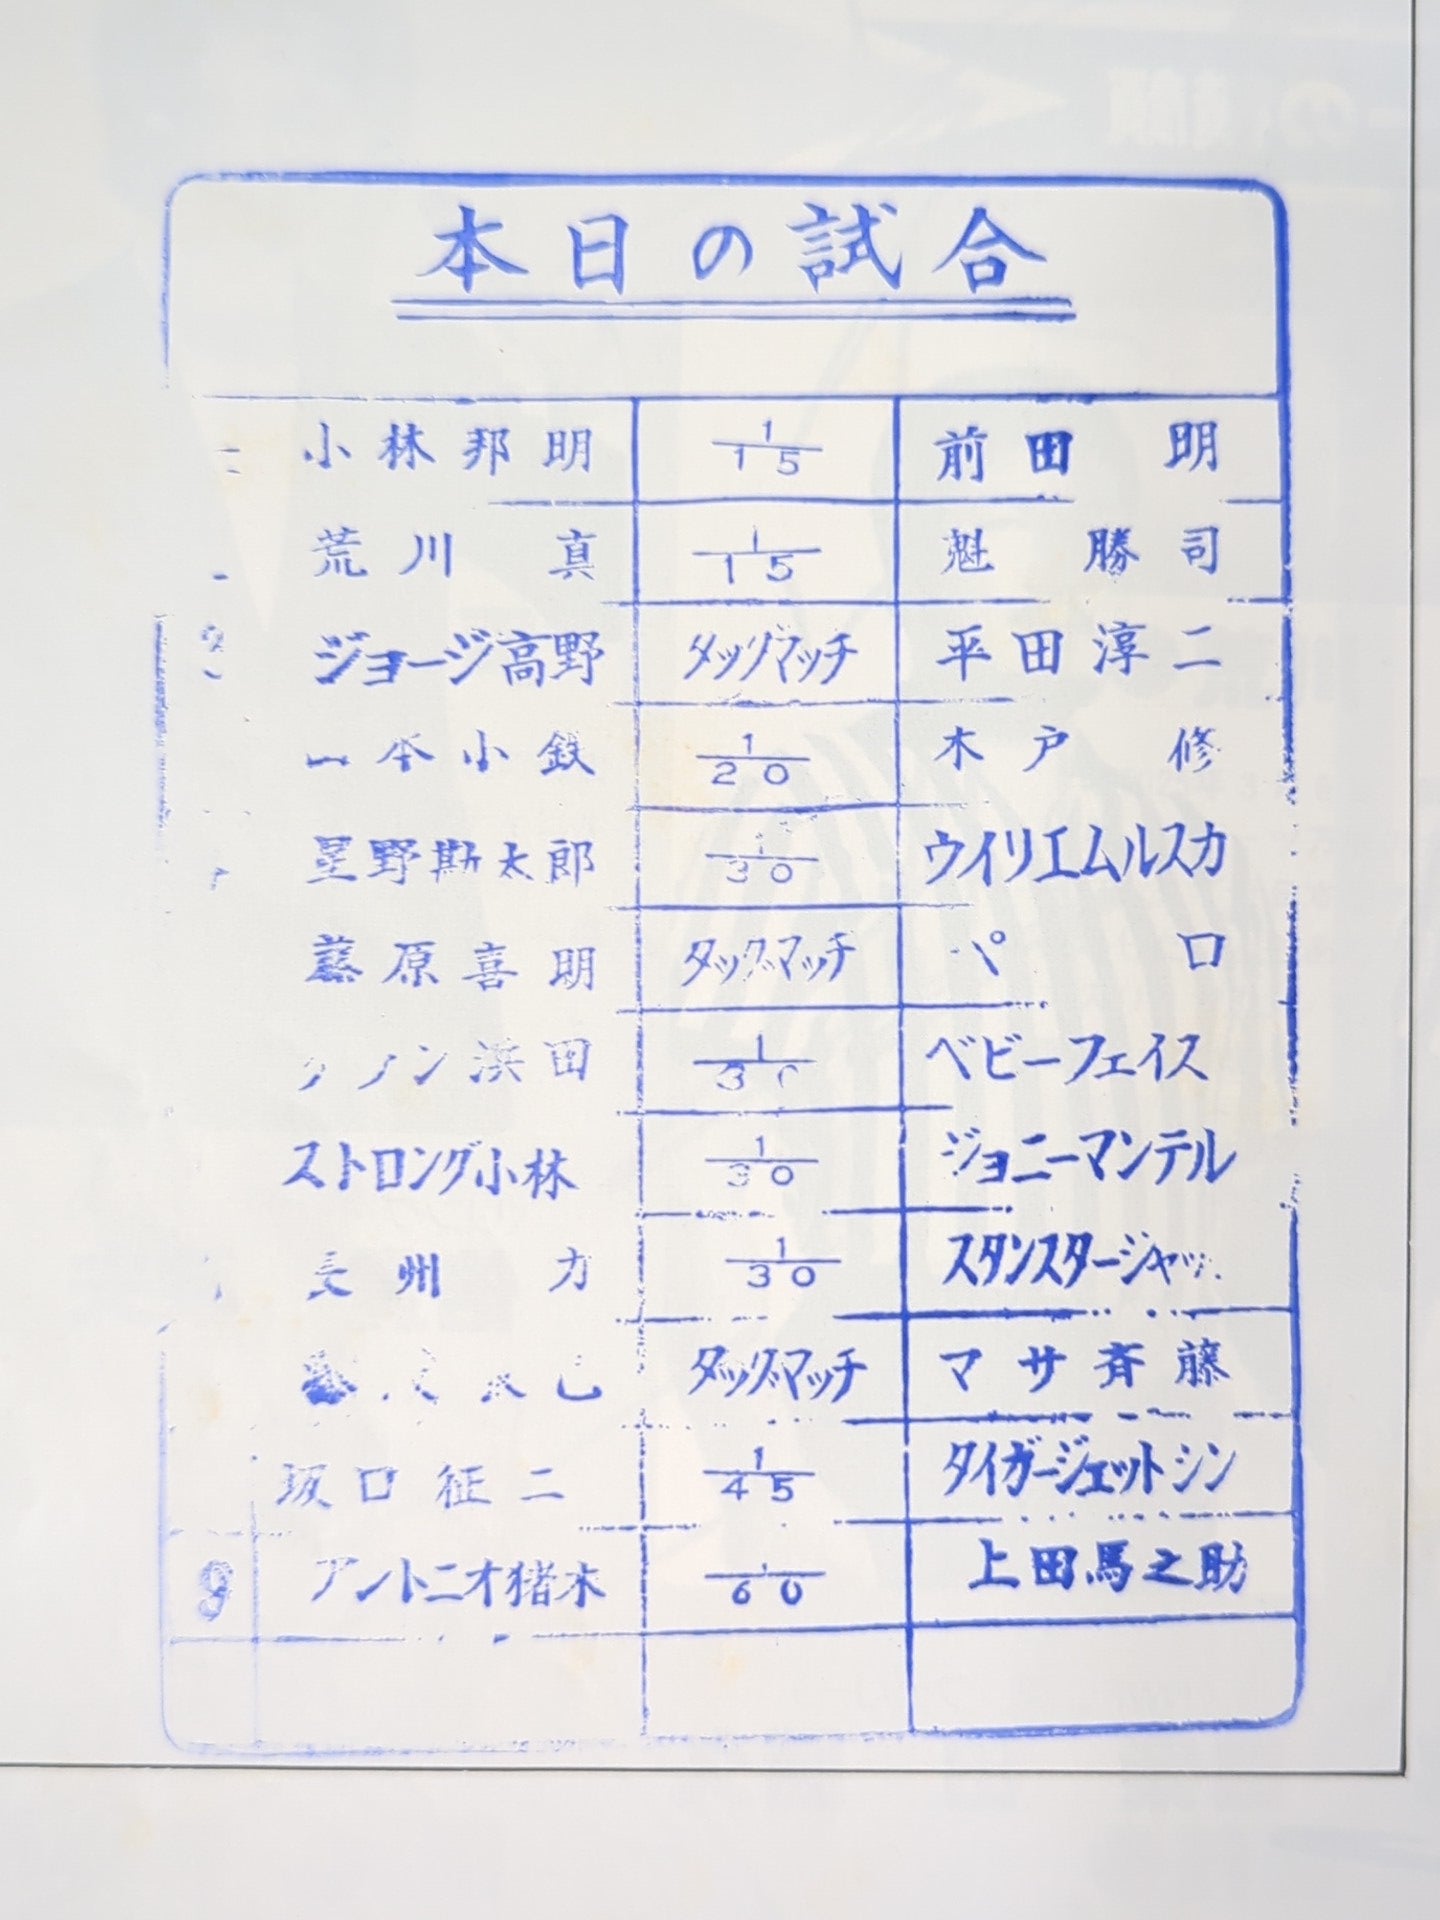 本日の試合
小林邦明 1/15 前田 明
荒川 真 1/15 魁 勝司
ジョージ高野 タッグマッチ 平田淳二
本小鉄 1/20 木戸 修
星野勘太郎 1/30 ウイリエムルスカ
藤原喜明 タッグマッチ ペロ
浜田 1/30 ベビーフェイス
ストロング小林 1/30 ジョニーマンテル
長州 力 1/30 スタンスタージャッ
タッグマッチ マサ斉藤
坂口征二 1/45 タイガージェットシン
9 アントニオ猪木 1/60 上田馬之助